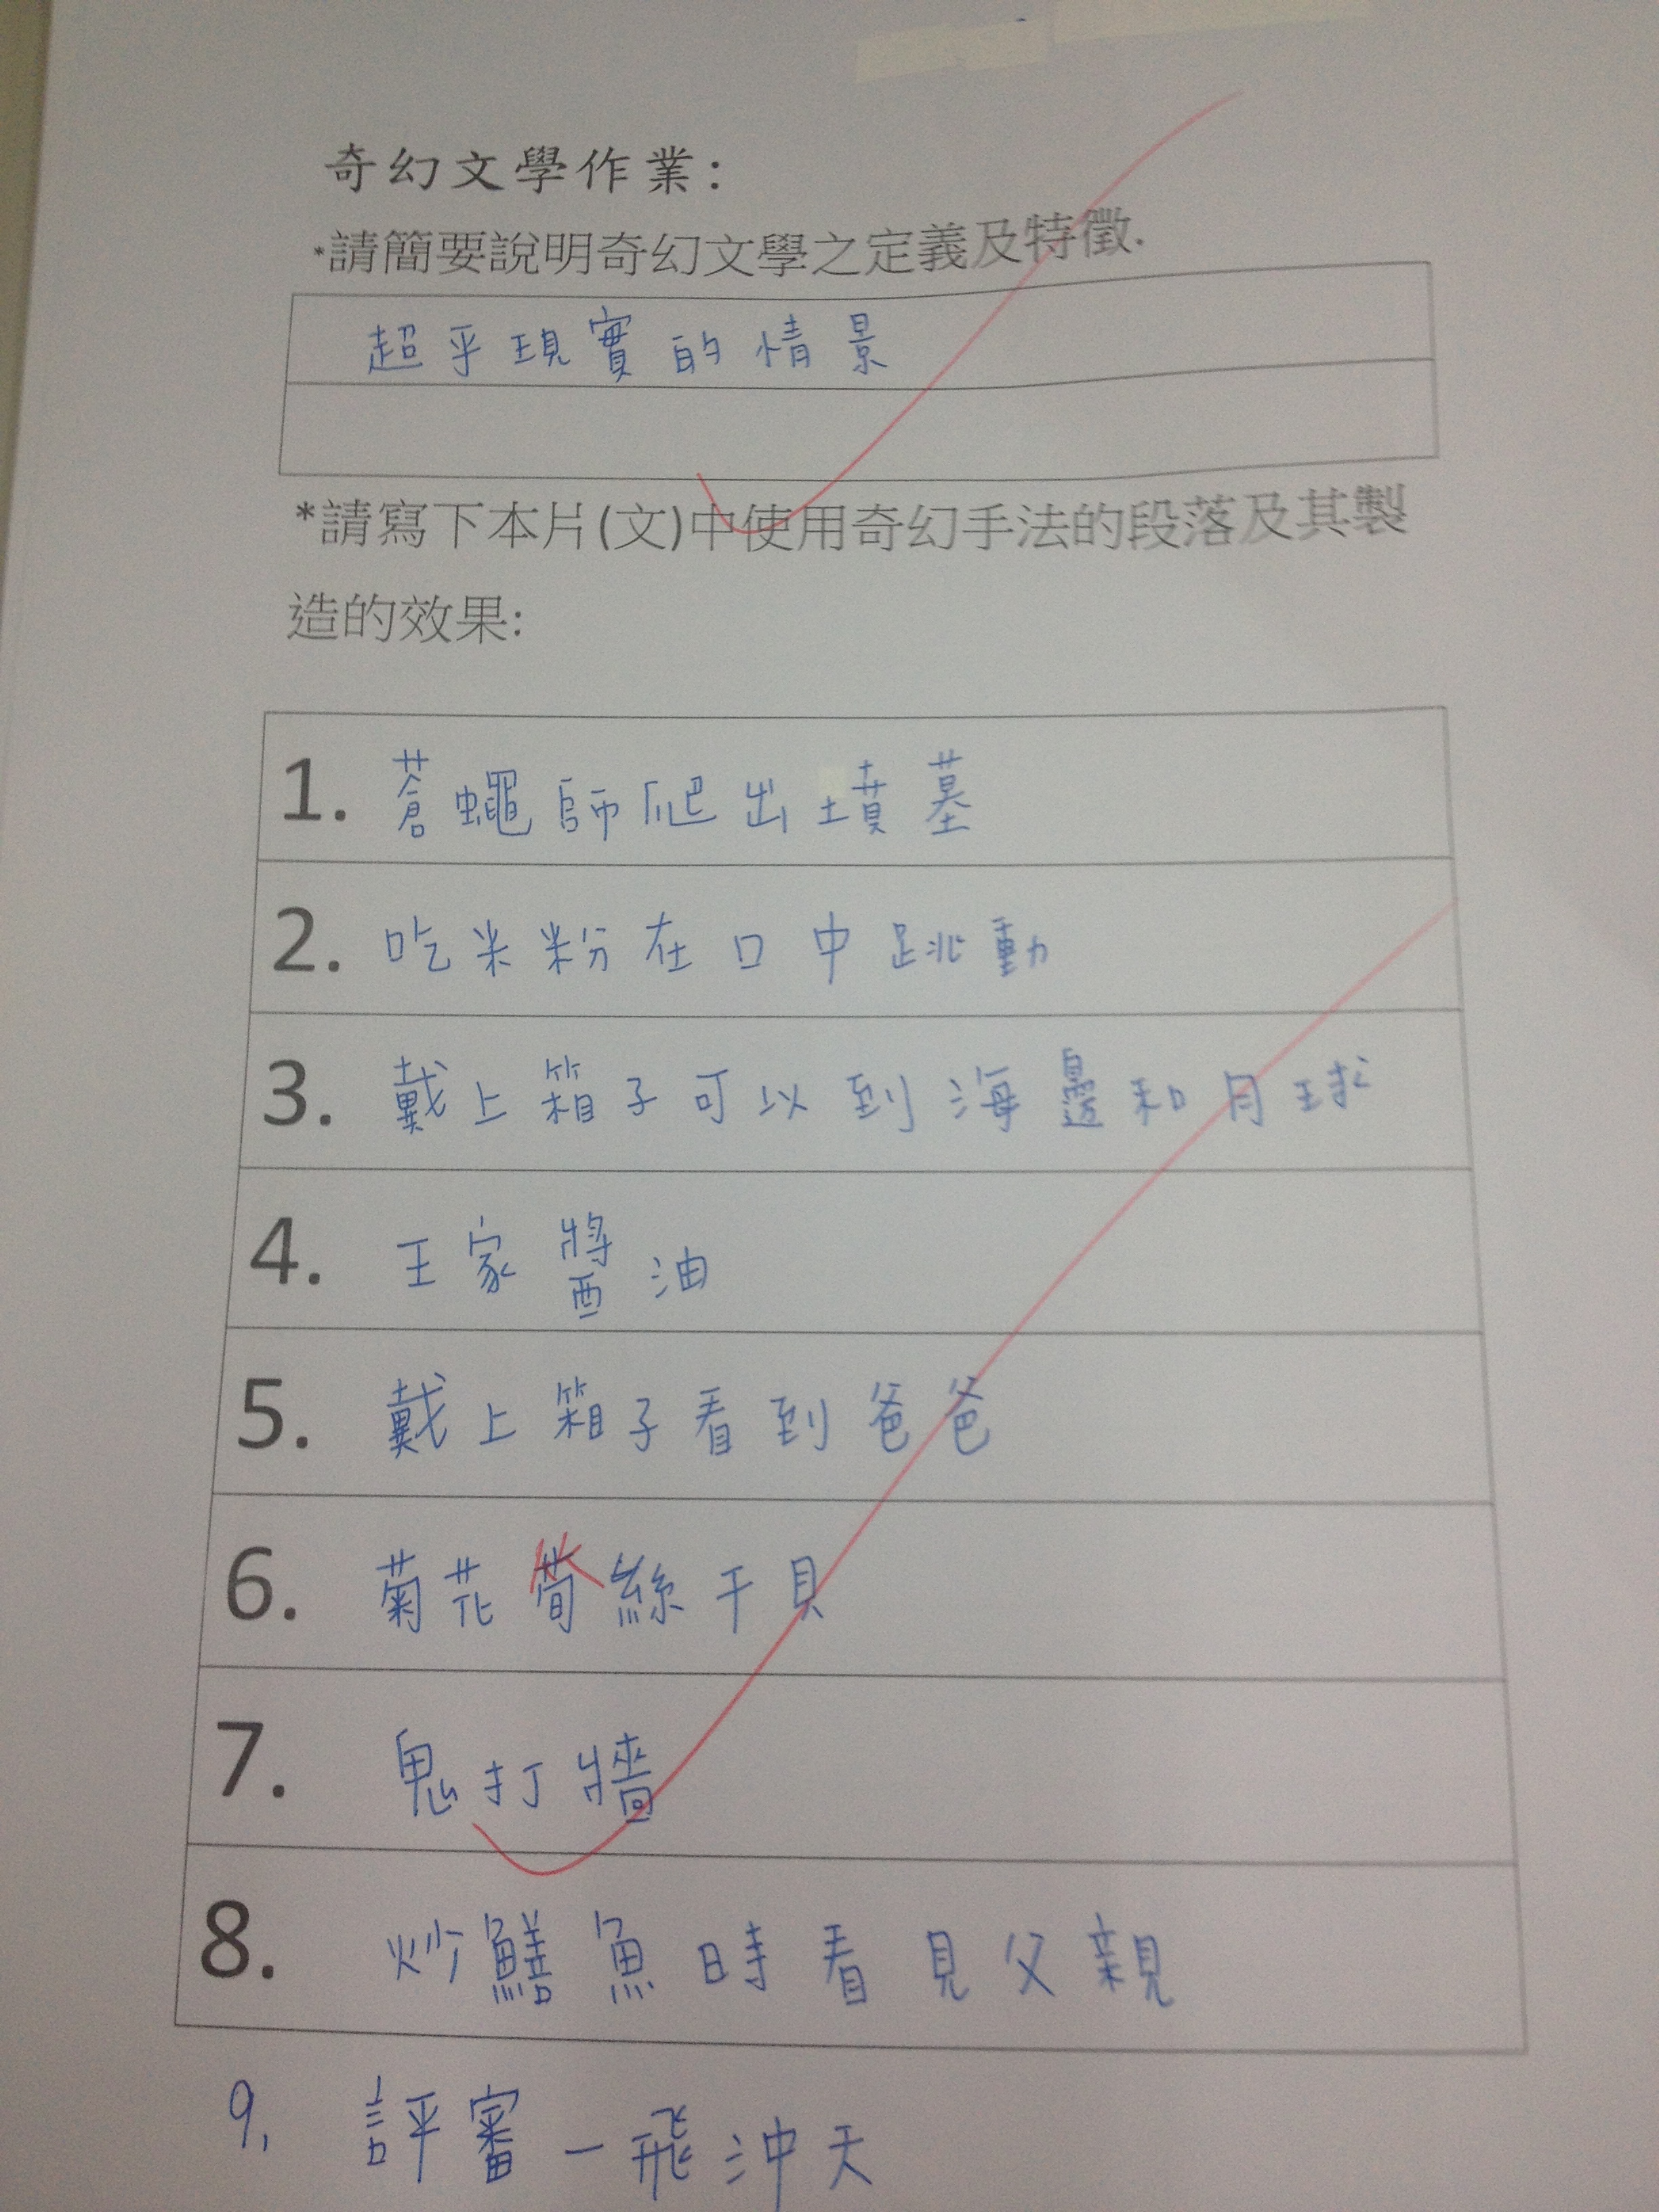 奇幻文學作業:
*請簡要說明奇幻文學之定義及特徵.
超乎現實的情景
*請寫下本片(文)中使用奇幻手法的段落及其製
造的效果:
1. 蒼蠅師爬出墳墓
2. 吃米粉在口中跳動
3. 戴上箱子可以到海邊和月球
4. 王家醬油
5. 戴上箱子看到爸爸
6. 菊花荀絲干貝
7. 鬼打牆
8. 炒鱔魚時看見父親
9. 評審一飛沖天